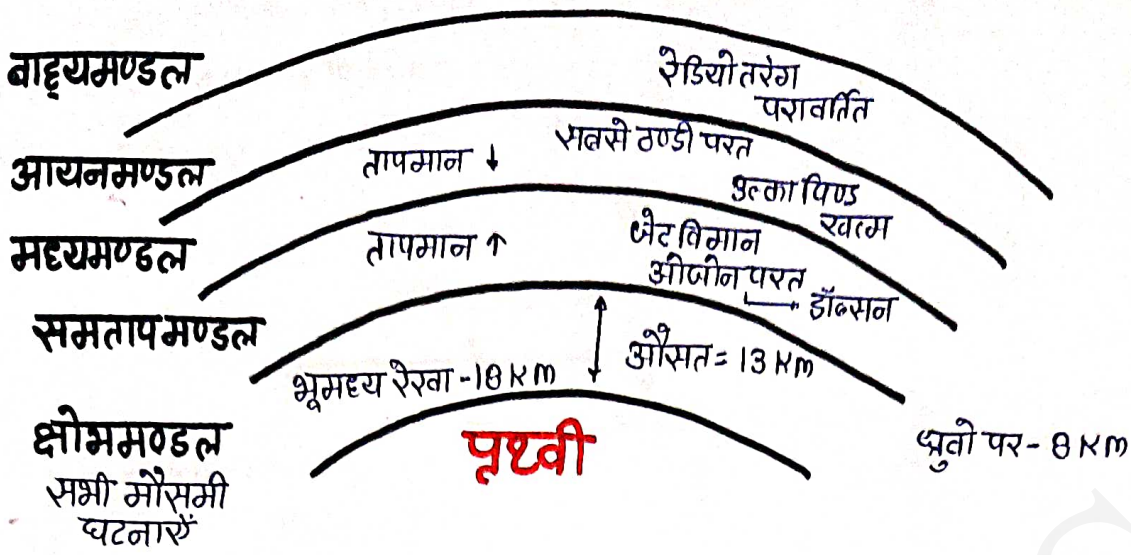 बाह्यमण्डल
रेडियो तरंग
परावर्तित
आयनमण्डल
तापमान ↓
सबसे ठण्डी परत
उल्का पिण्ड
खत्म
मध्यमण्डल
तापमान ↑
जेट विमान
ओजोन परत
→ डॉब्सन
समतापमण्डल
औसत = 13 Km
भूमध्य रेखा - 18 Km
क्षोभमण्डल
सभी मौसमी
घटनाएँ
पृथ्वी
ध्रुवो पर - 8 Km